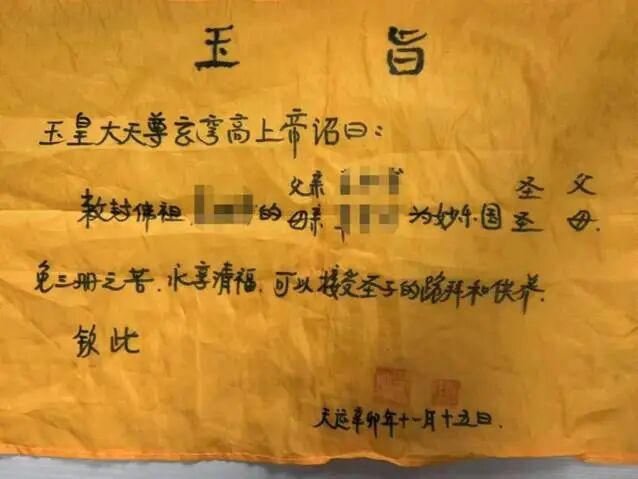 玉 旨
玉皇大天尊玄弯高上帝诏曰：
父亲 圣父
敕封佛祖 的 为妙乐国
母亲 圣母.
免三册之苦.永享清福.可以接受圣子的跪拜和供养.
钦此
天运辛卯年十一月十五日.